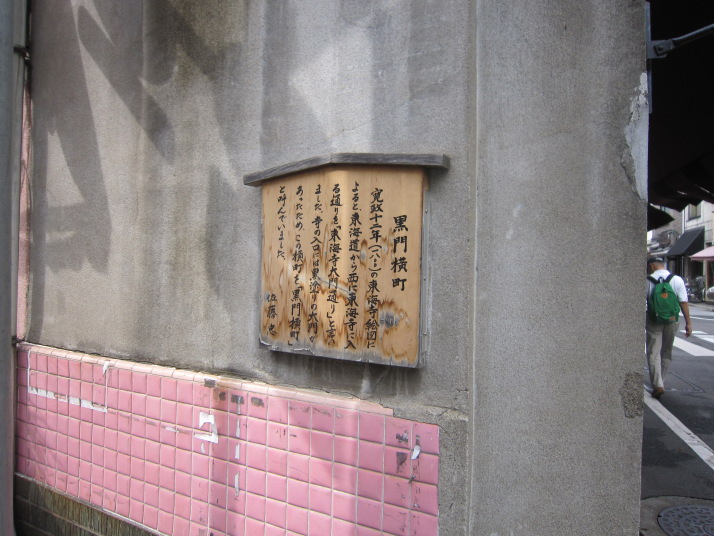 黒門横町
寛政十二年(一八〇〇)の東海寺絵図に
よると、東海道から西に東海寺に入
る通りを「東海寺大門通り」と言い
ました。寺の入口には黒塗りの大門が
あったため、この横町を「黒門横町」
と呼んでいました。
佐藤 忠